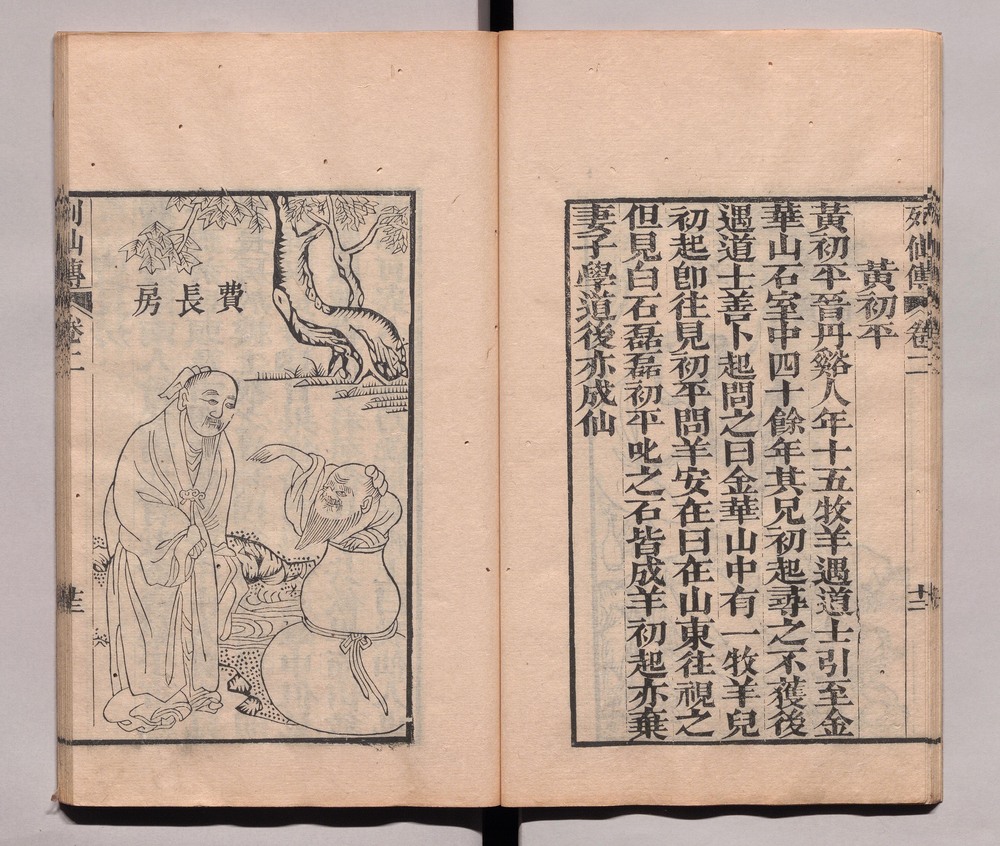 列仙傳 卷二 十二
黃初平
黃初平晉丹谿人年十五牧羊遇道士引至金
華山石室中四十餘年其兄初起尋之不獲後
遇道士善卜起問之曰金華山中有一牧羊兒
初起卽往見初平問羊安在曰在山東往視之
但見白石磊磊初平叱之石皆成羊初起亦棄
妻子學道後亦成仙
費長房
列仙傳 卷二 十三